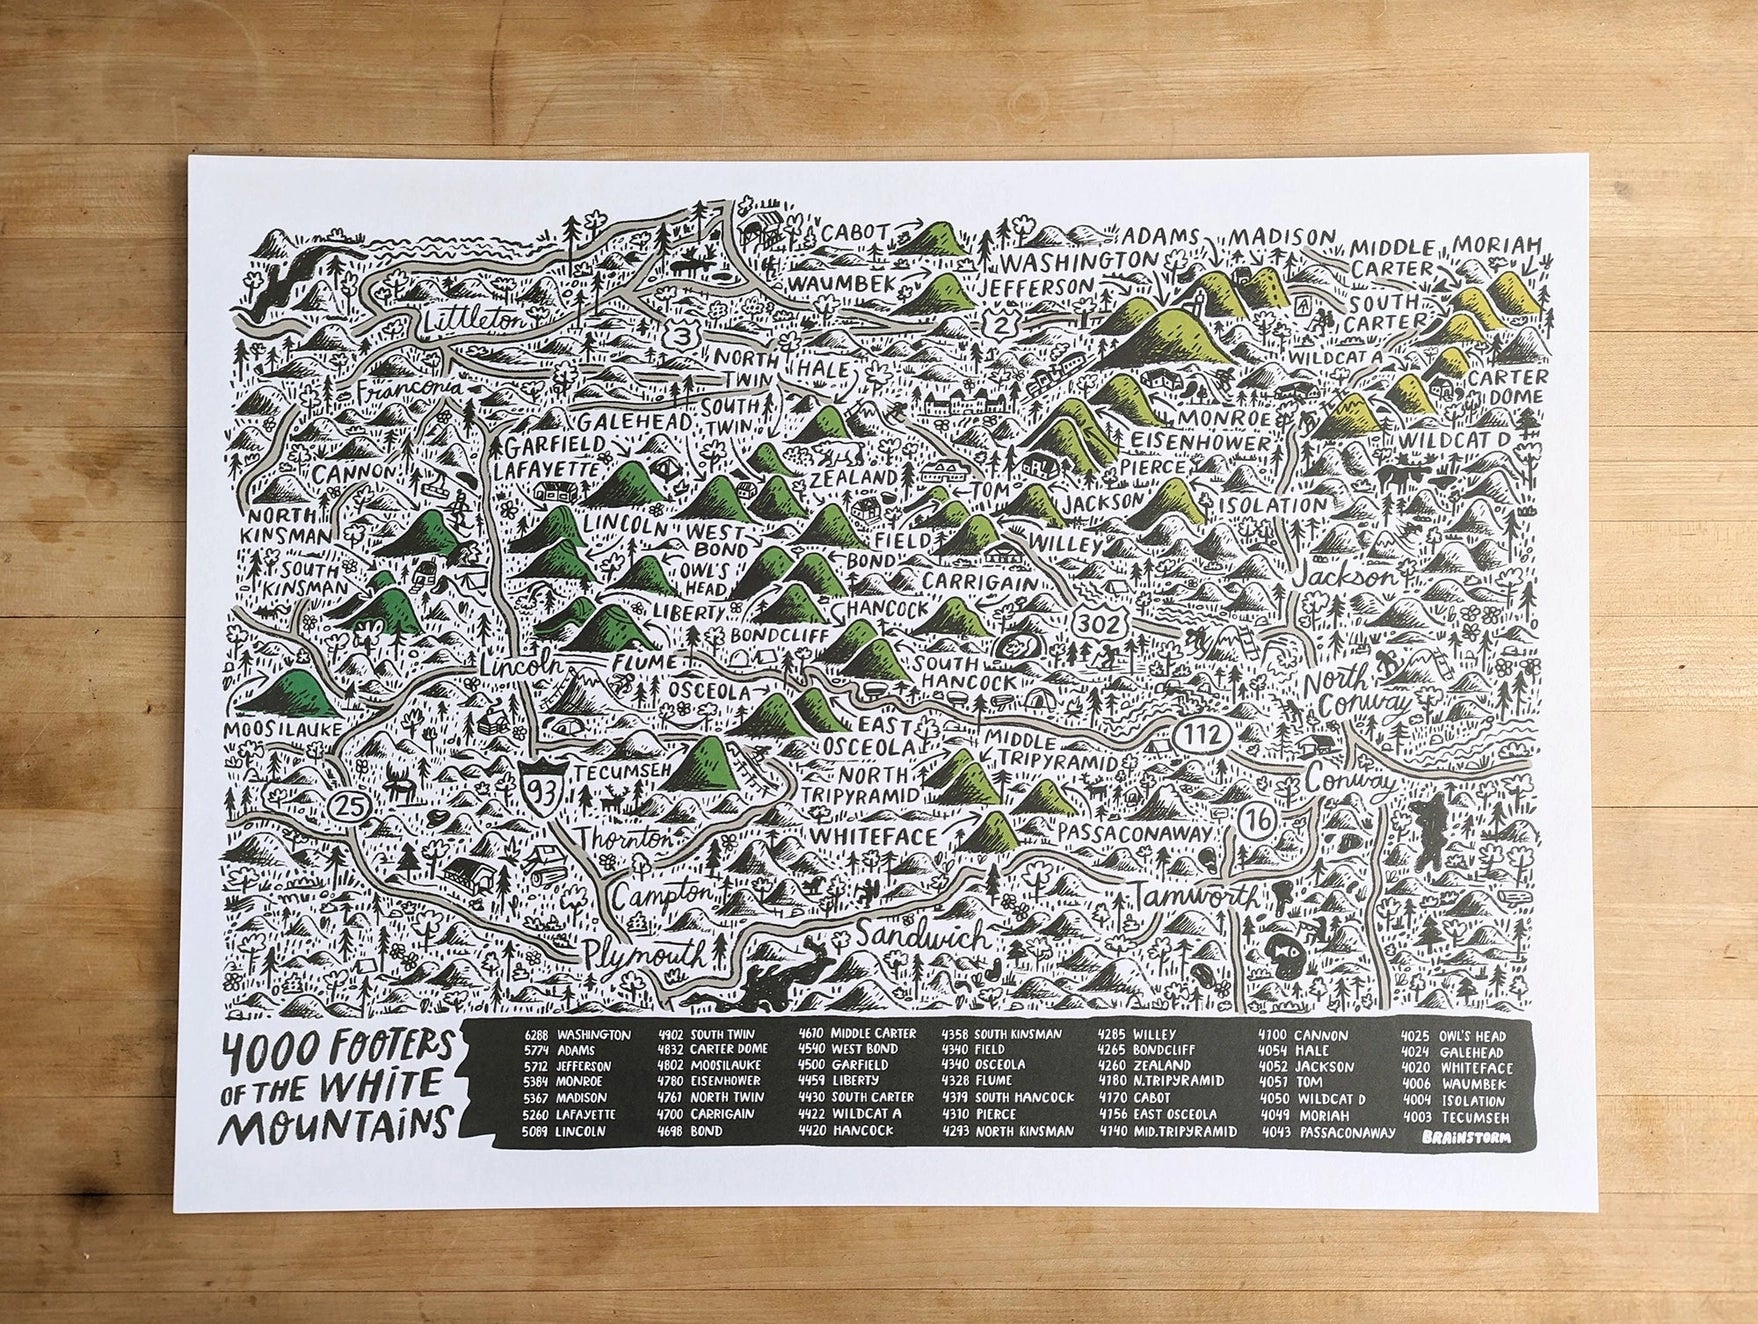 CABOT
ADAMS
MADISON
MIDDLE
CARTER
MORIAH
WASHINGTON
WAUMBEK
JEFFERSON
SOUTH
CARTER
Littleton
3
2
NORTH
TWIN
HALE
WILDCAT A
CARTER
DOME
Franconia
GALEHEAD
SOUTH
TWIN
MONROE
GARFIELD
EISENHOWER
WILDCAT D
CANNON
LAFAYETTE
ZEALAND
PIERCE
TOM
JACKSON
ISOLATION
NORTH
KINSMAN
LINCOLN
WEST
BOND
FIELD
WILLEY
SOUTH
KINSMAN
OWL'S
HEAD
BOND
CARRIGAIN
Jackson
LIBERTY
HANCOCK
302
BONDCLIFF
Lincoln
FLUME
SOUTH
HANCOCK
North
Conway
OSCEOLA
MOOSILAUKE
EAST
OSCEOLA
MIDDLE
TRIPYRAMID
112
TECUMSEH
NORTH
TRIPYRAMID
Conway
93
25
Thornton
WHITEFACE
PASSACONAWAY
16
Campton
Tamworth
Plymouth
Sandwich
4000 FOOTERS
OF THE WHITE
MOUNTAINS
6288 WASHINGTON
5774 ADAMS
5712 JEFFERSON
5384 MONROE
5367 MADISON
5260 LAFAYETTE
5089 LINCOLN
4902 SOUTH TWIN
4832 CARTER DOME
4802 MOOSILAUKE
4780 EISENHOWER
4761 NORTH TWIN
4700 CARRIGAIN
4698 BOND
4610 MIDDLE CARTER
4540 WEST BOND
4500 GARFIELD
4459 LIBERTY
4430 SOUTH CARTER
4422 WILDCAT A
4420 HANCOCK
4358 SOUTH KINSMAN
4340 FIELD
4340 OSCEOLA
4328 FLUME
4319 SOUTH HANCOCK
4310 PIERCE
4293 NORTH KINSMAN
4285 WILLEY
4265 BONDCLIFF
4260 ZEALAND
4180 N.TRIPYRAMID
4170 CABOT
4156 EAST OSCEOLA
4140 MID.TRIPYRAMID
4100 CANNON
4054 HALE
4052 JACKSON
4051 TOM
4050 WILDCAT D
4049 MORIAH
4043 PASSACONAWAY
4025 OWL'S HEAD
4024 GALEHEAD
4020 WHITEFACE
4006 WAUMBEK
4004 ISOLATION
4003 TECUMSEH
BRAINSTORM